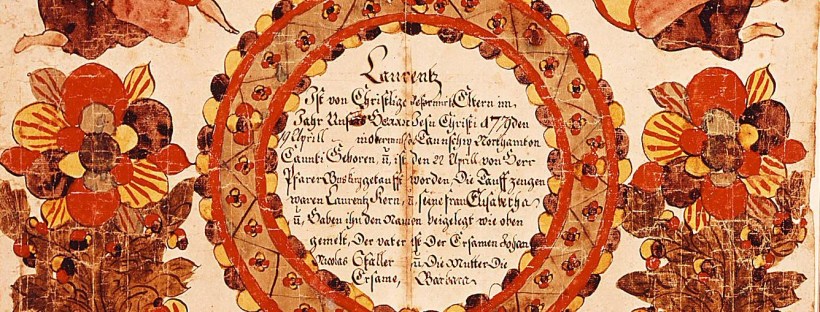 Laurentz
Ist von Christlige reformirte Eltern im
Jahr Unsers Herrn Jesu Christi 1779 den
April in Taunschip Northamton
Caunti Gehoren, ü, ist den 22 April von Herr
Pfarer getaufft worden, Die Tauff zeugen
waren Laurentz Kern, ü, seine frau Elisabetha
ü, Haben ihn den Namen beigelegt wie oben
gemelt, Der vater ist Der Ersamen Johan
Nicolas ü Die Mutter Die
Ersame, Barbara